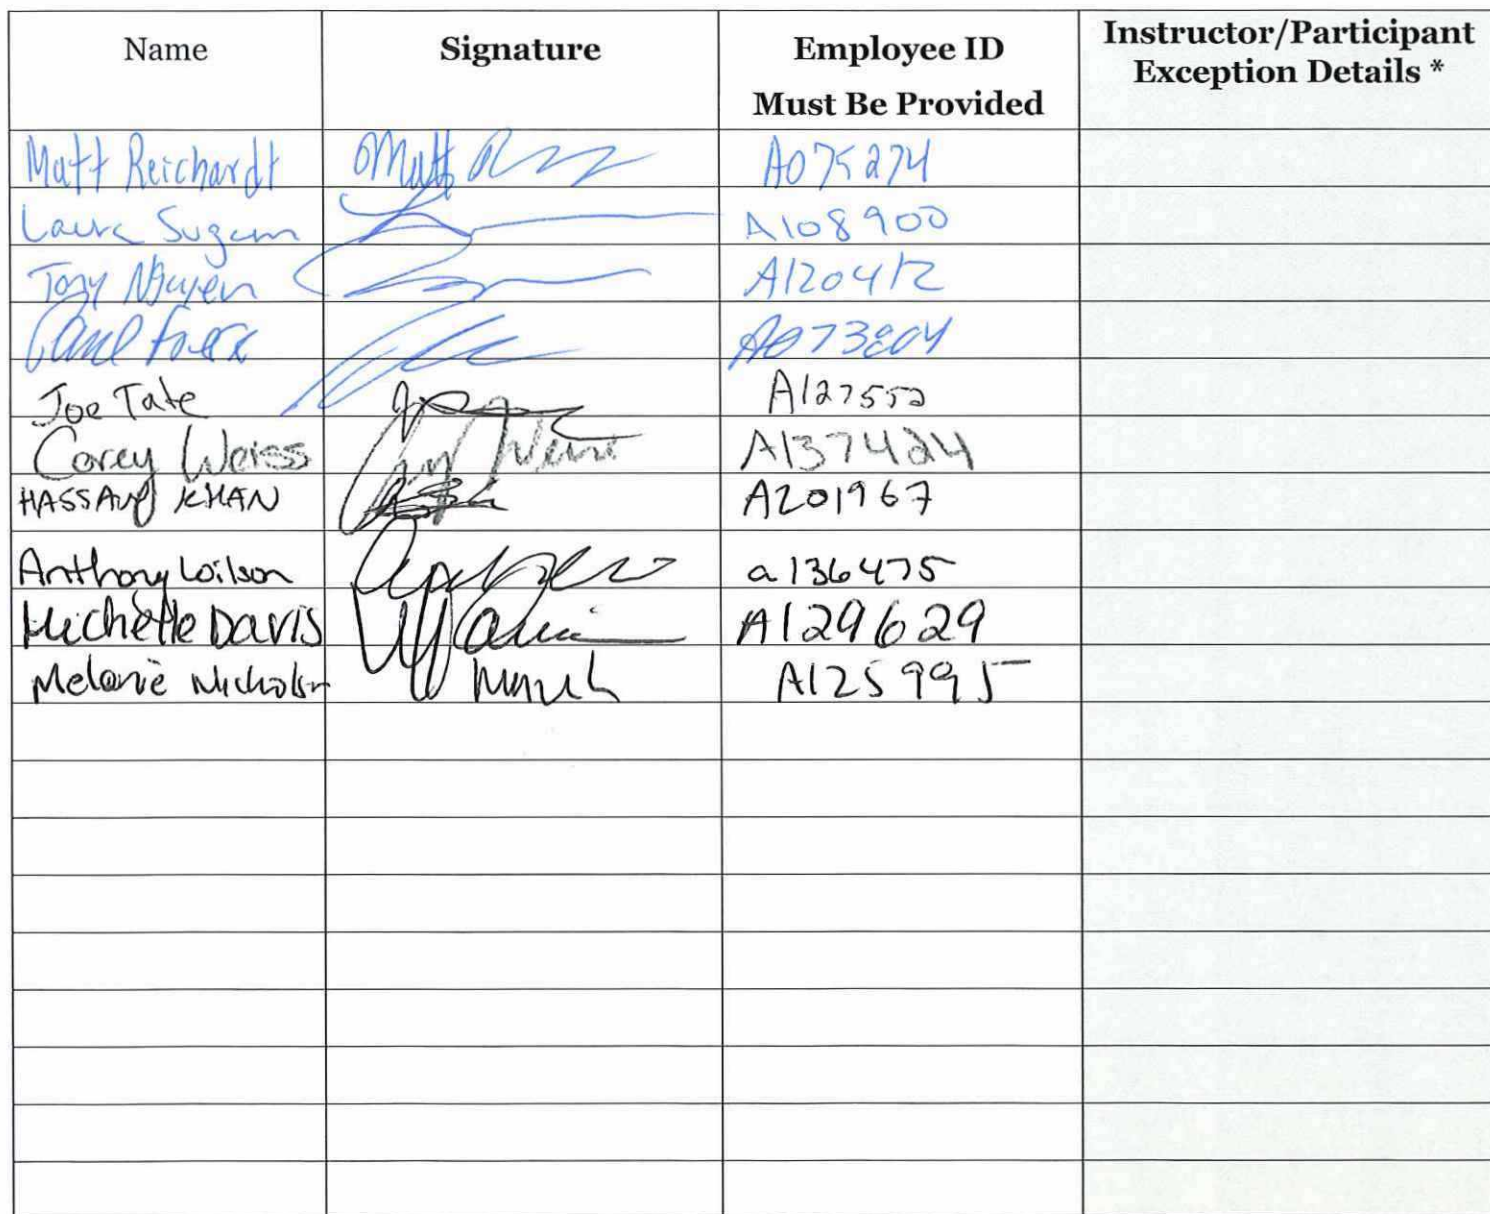 Name Signature Employee ID Must Be Provided Instructor/Participant Exception Details *
Matt Reichardt Matt A075274
Laura A108900
Tony Nguyen A120412
A073804
Joe Tate A127552
Corey Weiss A137424
HASSAN KHAN A201967
Anthony Wilson a136475
Michelle Davis A129629
Melanie Nicholson A125995